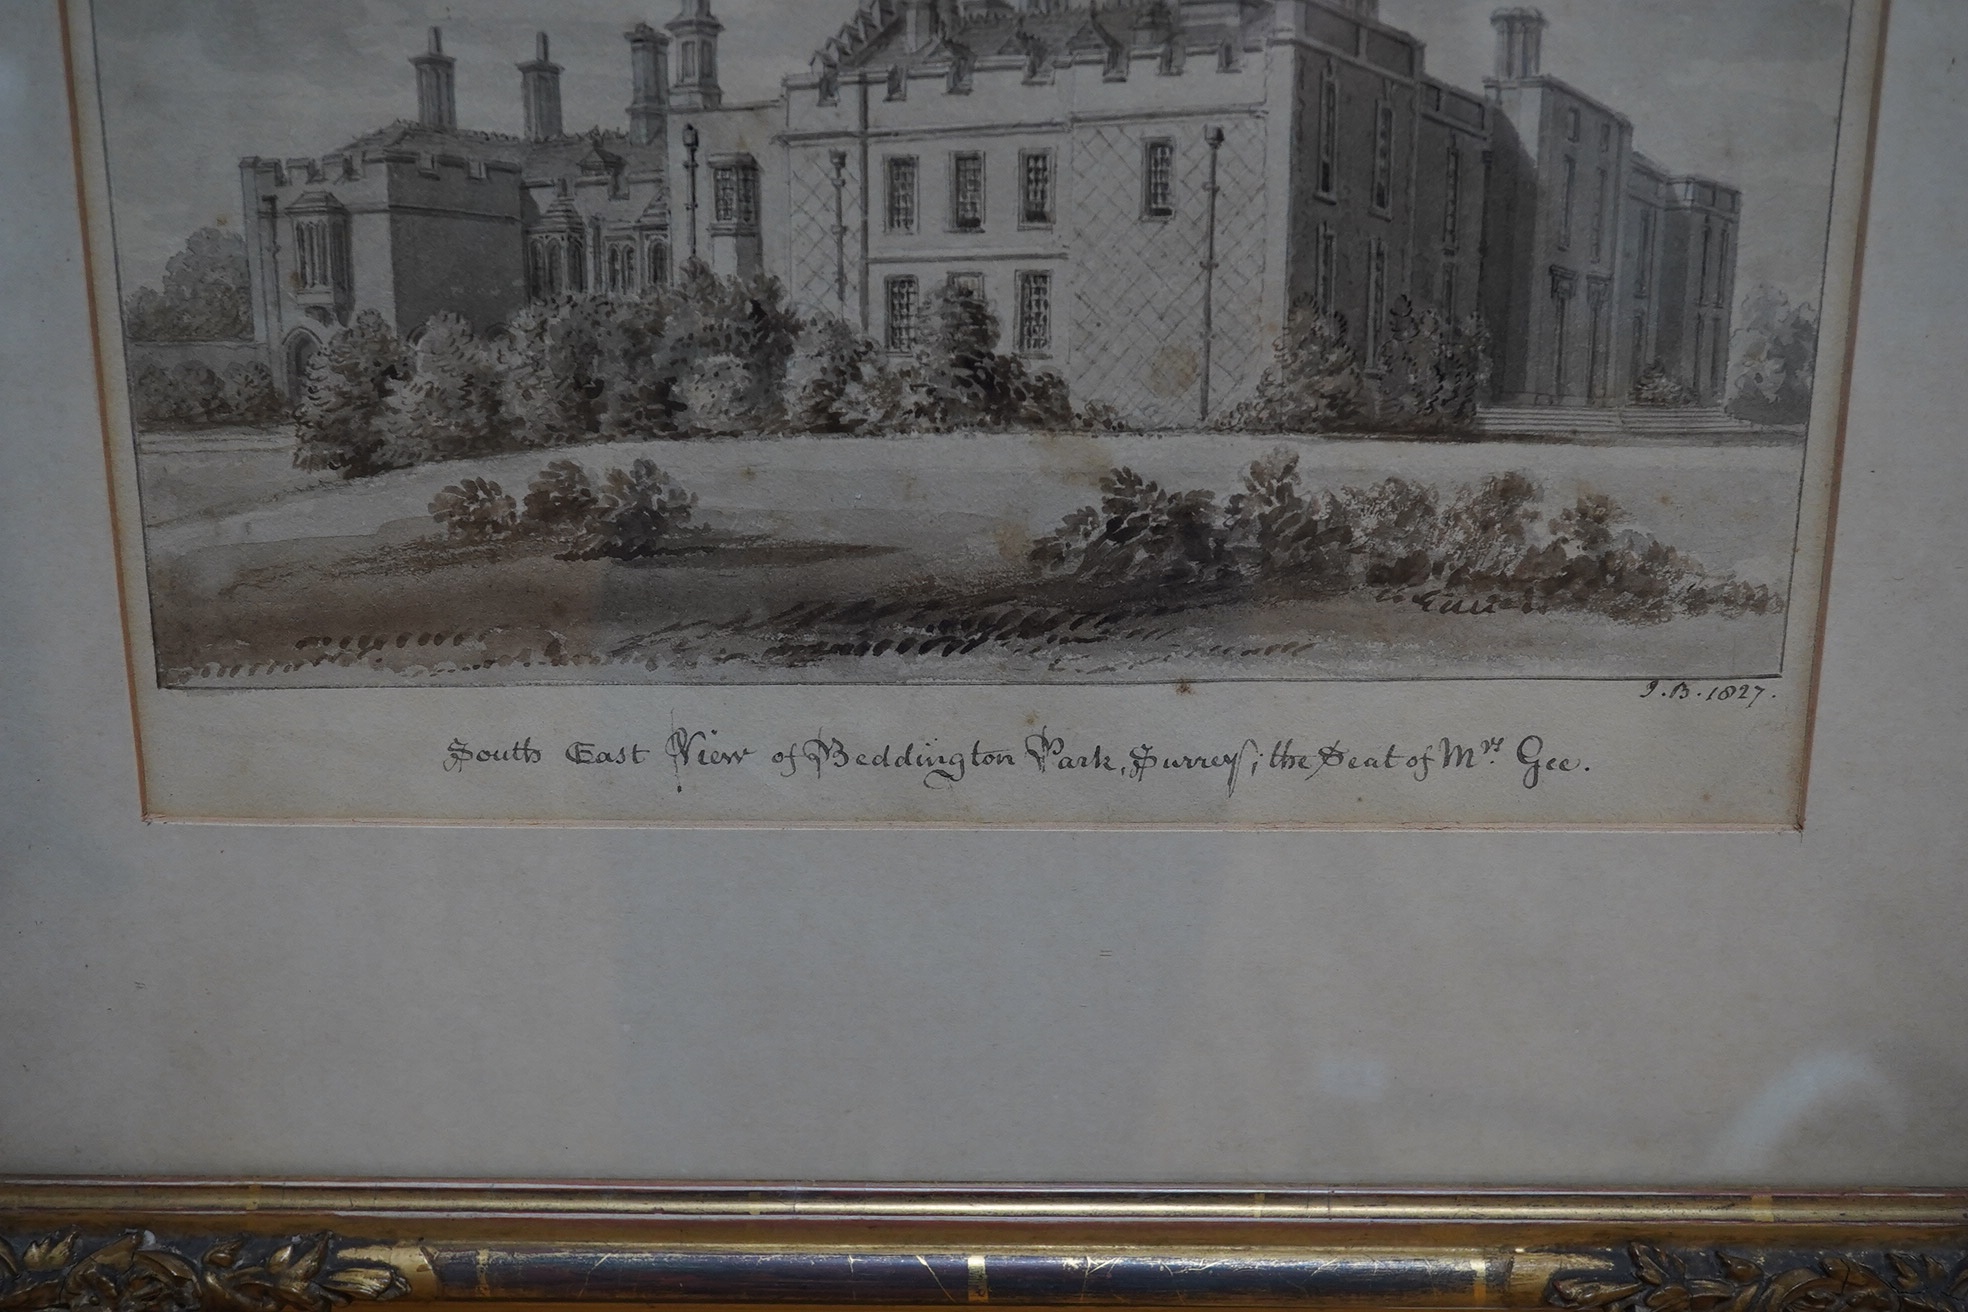 J.B. 1827.
South East View of Beddington Park, Surrey; the Seat of Mrs. Gee.